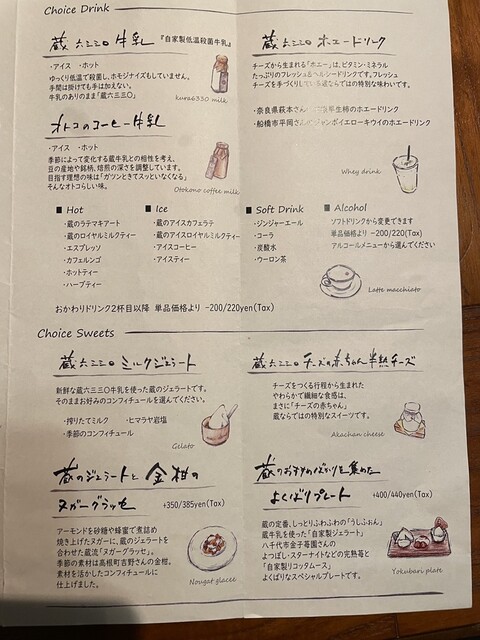 Choice Drink
蔵六三三〇牛乳 『自家製低温殺菌牛乳』
・アイス ・ホット
ゆっくり低温で殺菌し、ホモジナイズもしていません。
手間は掛けても手は加えない。
牛乳のありのまま「蔵六三三〇」
kura6330 milk
オトコのコーヒー牛乳
・アイス ・ホット
季節によって変化する蔵牛乳との相性を考え、
豆の産地や銘柄、焙煎の深さを調整しています。
目指す理想の味は「ガツンときてスッといなくなる」
そんなオトコらしい味。
Otokono coffee milk
蔵六三三〇ホエードリンク
チーズから生まれる「ホエー」は、ビタミン・ミネラル
たっぷりのフレッシュ&ヘルシードリンクです。フレッシュ
チーズを手づくりしている蔵ならではの特別な味わいです。
・奈良県萩本さん 生柿のホエードリンク
・船橋市平岡さん ジャンボイエローキウイのホエードリンク
Whey drink
■ Hot
・蔵のラテマキアート
・蔵のロイヤルミルクティー
・エスプレッソ
・カフェルンゴ
・ホットティー
・ハーブティー
■ Ice
・蔵のアイスカフェラテ
・蔵のアイスロイヤルミルクティー
・アイスコーヒー
・アイスティー
■ Soft Drink
・ジンジャーエール
・コーラ
・炭酸水
・ウーロン茶
■ Alcohol
ソフトドリンクから変更できます
単品価格より -200/220(Tax)
アルコールメニューから選んでください
Latte macchiato
おかわりドリンク2杯目以降 単品価格より -200/220yen(Tax)
Choice Sweets
蔵六三三〇ミルクジェラート
新鮮な蔵六三三〇牛乳を使った蔵のジェラートです。
そのままお好みのコンフィチュールを選んでください。
・搾りたてミルク ・ヒマラヤ岩塩
・季節のコンフィチュール
Gelato
蔵六三三〇チーズの赤ちゃん半熟チーズ
チーズをつくる行程から生まれた
やわらかで繊細な食感は、
まさに「チーズの赤ちゃん」
蔵ならではの特別なスイーツです。
Akachan cheese
蔵のジェラートと金柑の
ヌガーグラッセ +350/385yen(Tax)
アーモンドを砂糖や蜂蜜で煮詰め
焼き上げたヌガーに、蔵のジェラートを
合わせた蔵流「ヌガーグラッセ」。
季節の素材は高根町吉野さんの金柑。
素材を活かしたコンフィチュールに
仕上げました。
Nougat glacée
蔵のおすすめばかりを集めた
よくばりプレート +400/440yen(Tax)
蔵の定番、しっとりふわふわの「うしふぉん」
蔵牛乳を使った「自家製ジェラート」
八千代市金子苺園さんの
よつぼし・スターナイトなどの完熟苺と
「自家製リコッタムース」
よくばりなスペシャルプレートです。
Yokubari plate